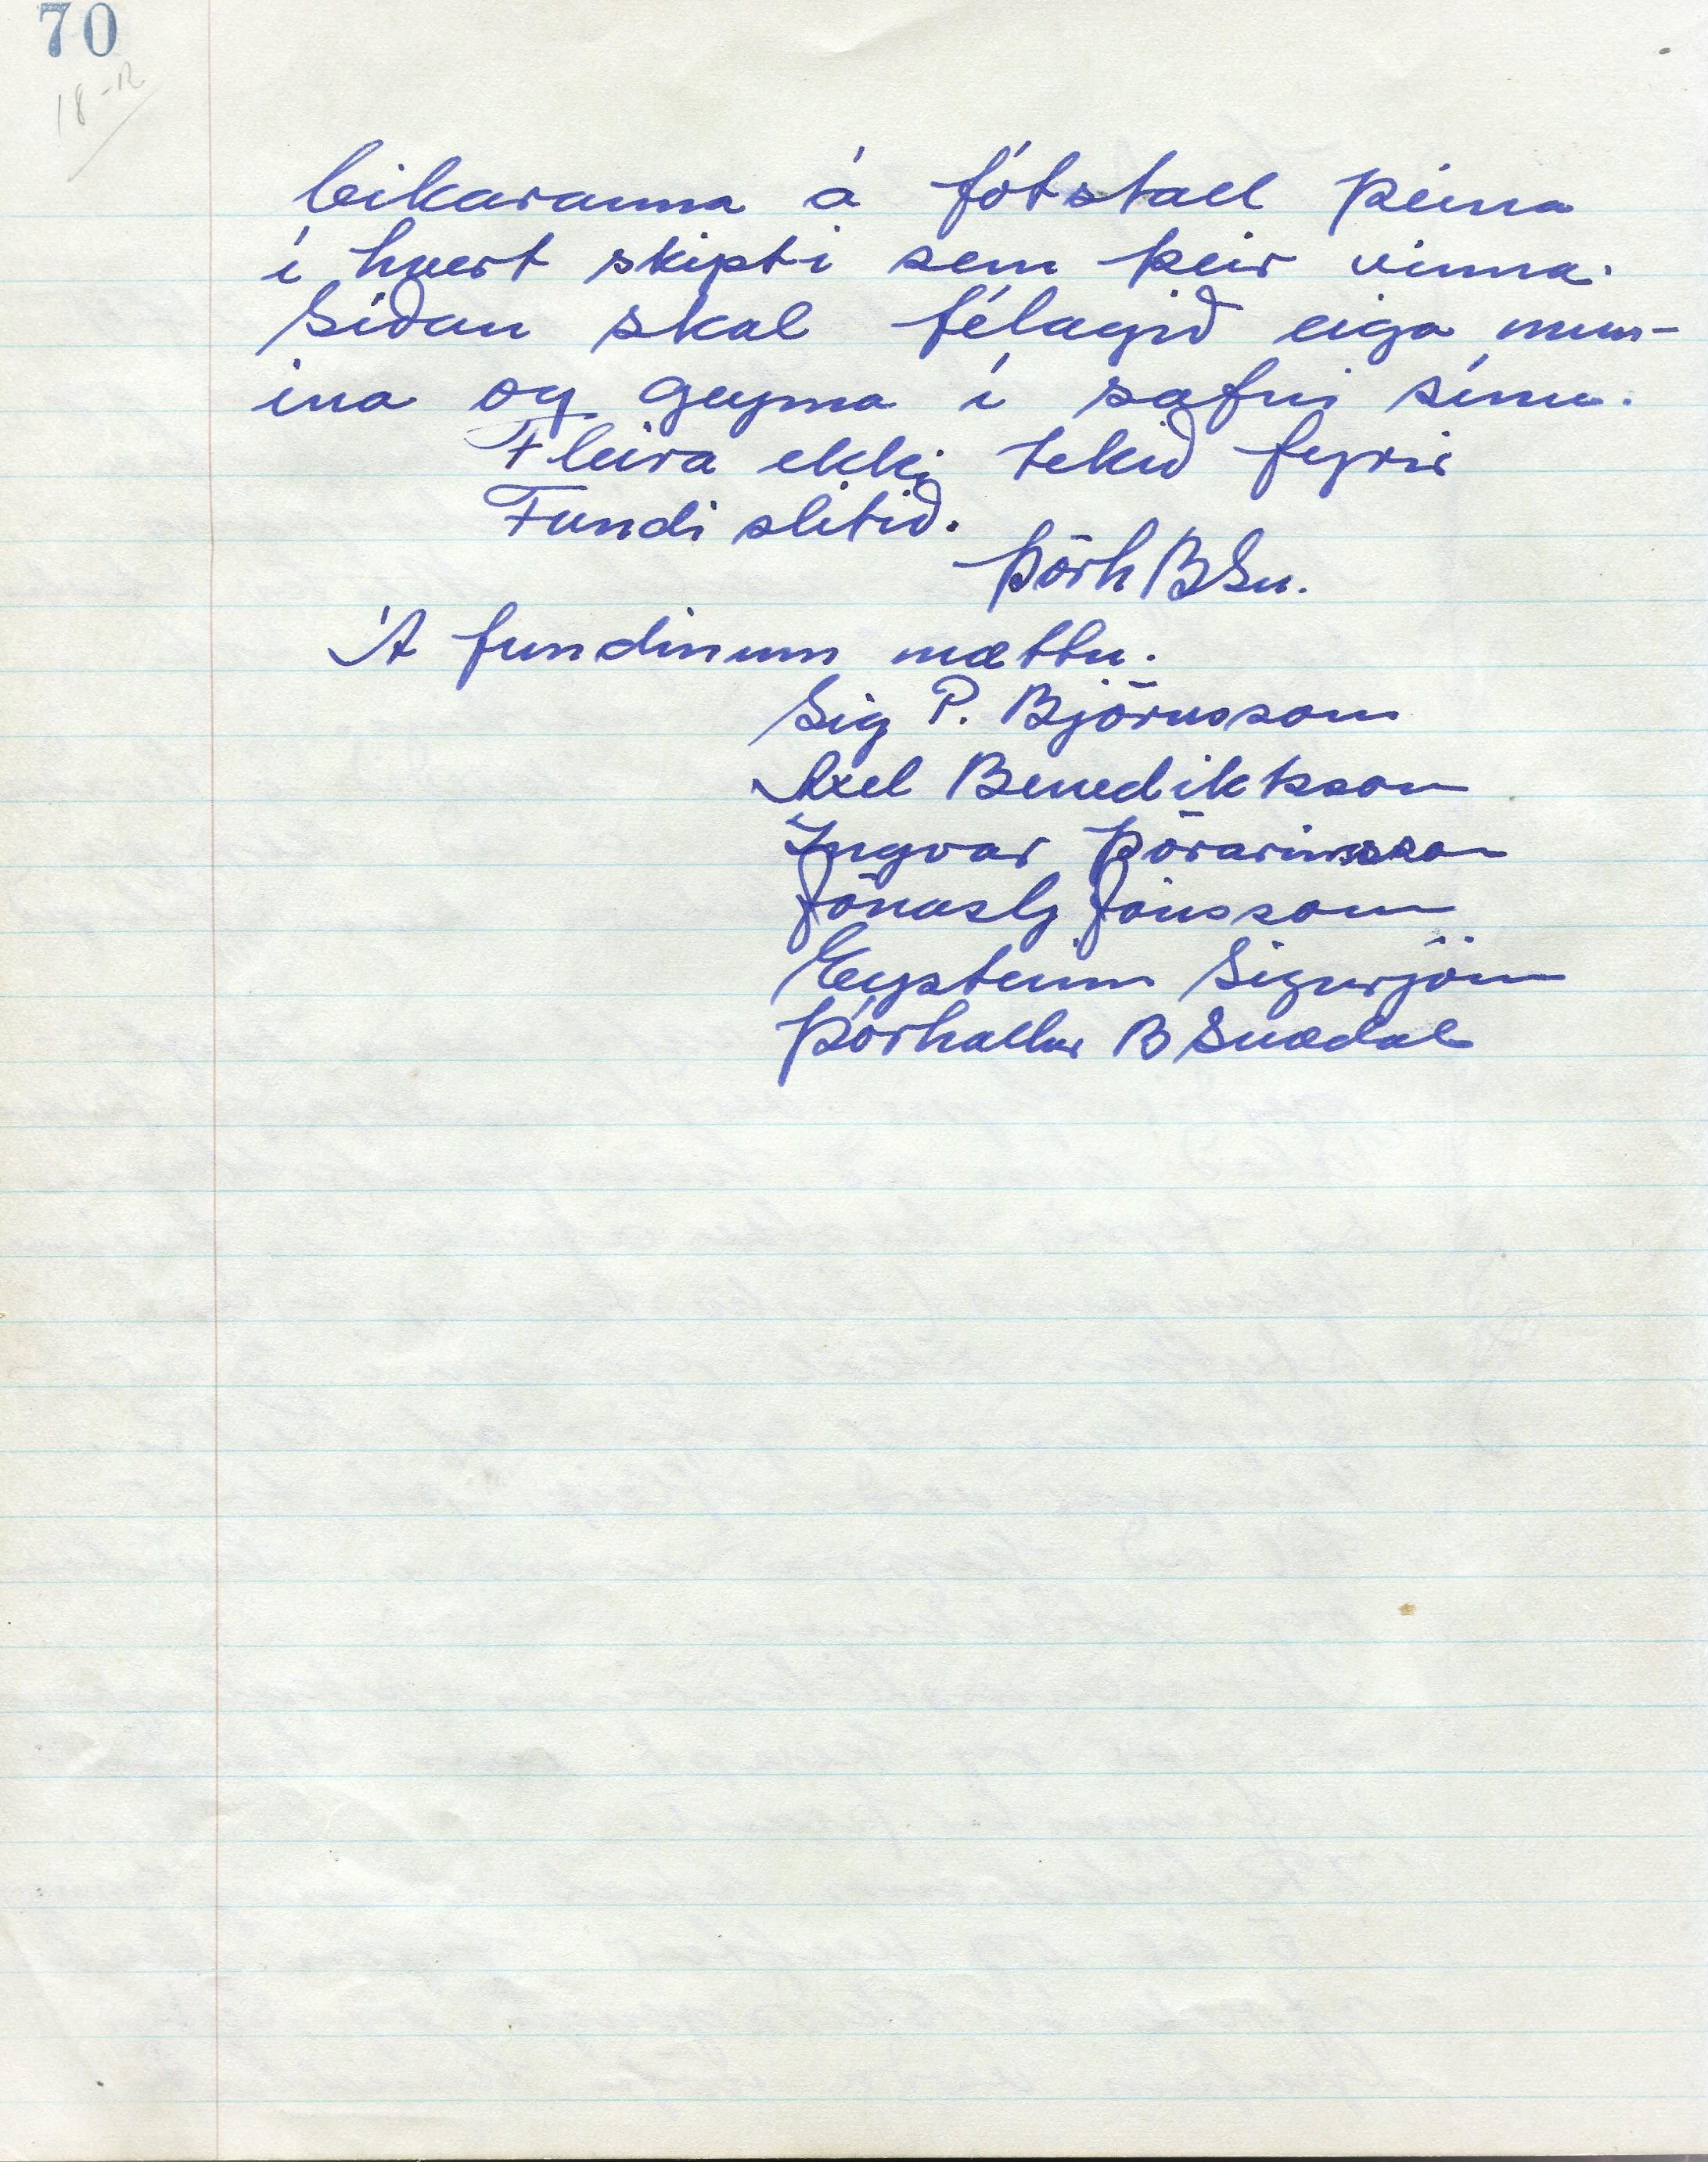 70
18-12
bikaranna á fótstall þeirra
í hvert skipti sem þeir vinna.
Síðan skal félagið eiga mun-
ina og geyma í safni sínu.
Fleira ekki tekið fyrir
Fundi slitið.
Þórh B Sn.
Á fundinum mættu.
Sig P. Björnsson
Axel Benediktsson
Ingvar Þórarinsson
Jónas G Jónsson
Eysteinn Sigurjóns
Þórhallur B Snædal